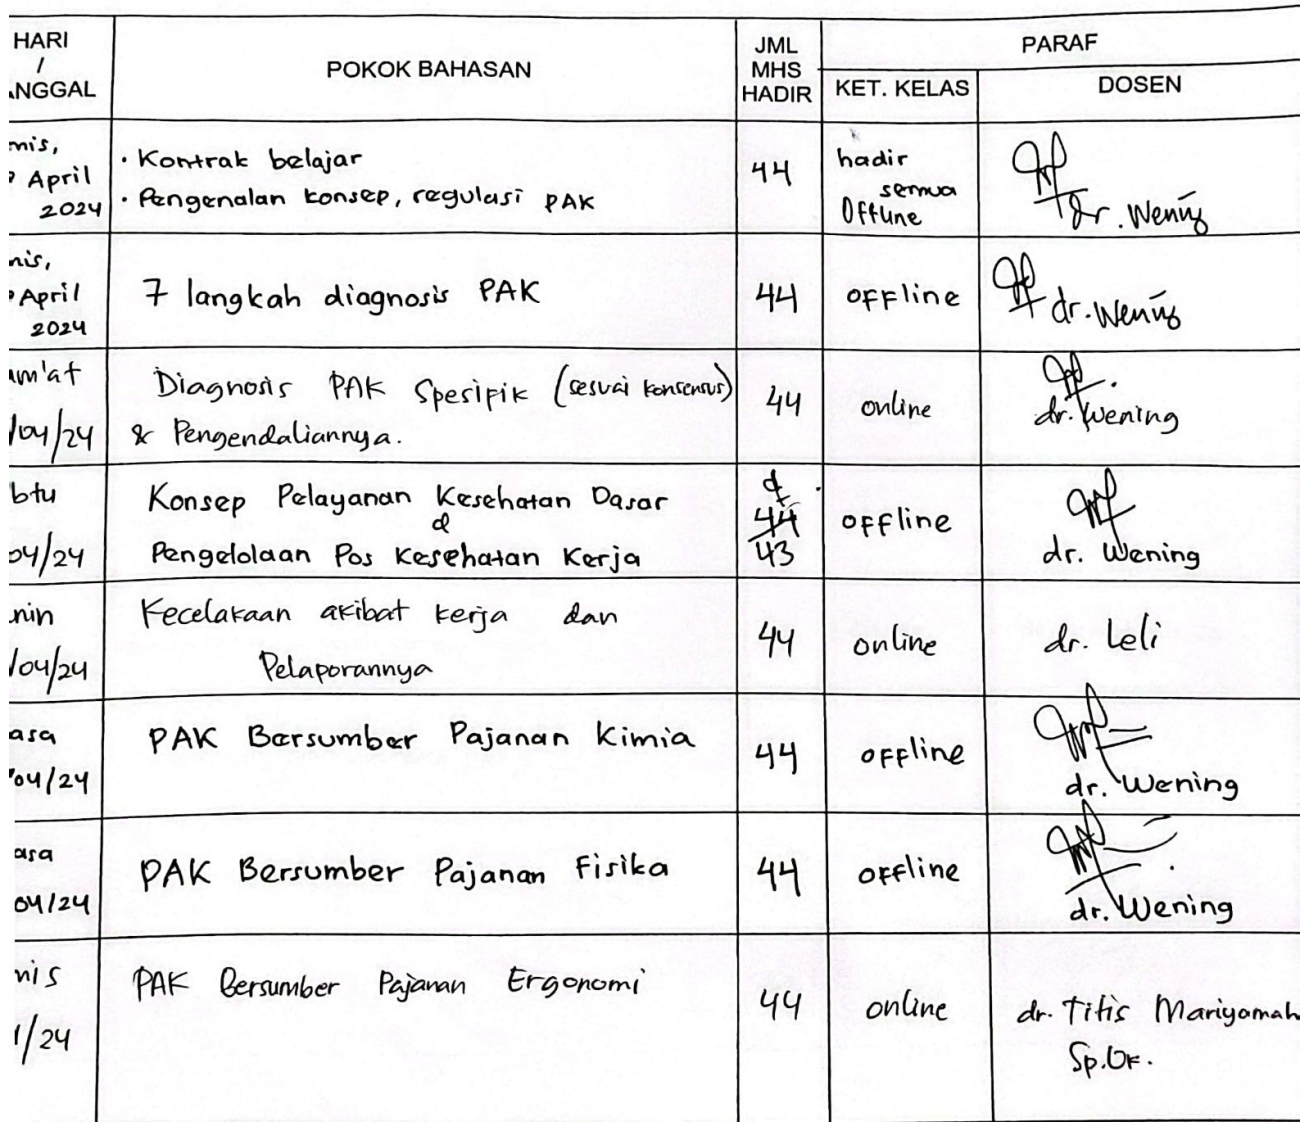 HARI
/
ANGGAL
POKOK BAHASAN
JML
MHS
HADIR
PARAF
KET. KELAS
DOSEN
mis,
April
2024
• Kontrak belajar
• Pengenalan konsep, regulasi PAK
44
hadir
semua
Offline
dr. Wening
nis,
April
2024
7 langkah diagnosis PAK
44
offline
dr. Wening
um'at
/04/24
Diagnosis PAK Spesifik (sesuai konsensus)
& Pengendaliannya.
44
online
dr. Wening
btu
04/24
Konsep Pelayanan Kesehatan Dasar
Pengelolaan Pos Kesehatan Kerja
44
43
offline
dr. Wening
nin
/04/24
Kecelakaan akibat kerja dan
Pelaporannya
44
online
dr. Leli
asa
04/24
PAK Bersumber Pajanan Kimia
44
offline
dr. Wening
asa
04/24
PAK Bersumber Pajanan Fisika
44
offline
dr. Wening
nis
/24
PAK Bersumber Pajanan Ergonomi
44
online
dr. Titis Mariyamah
Sp.Ok.